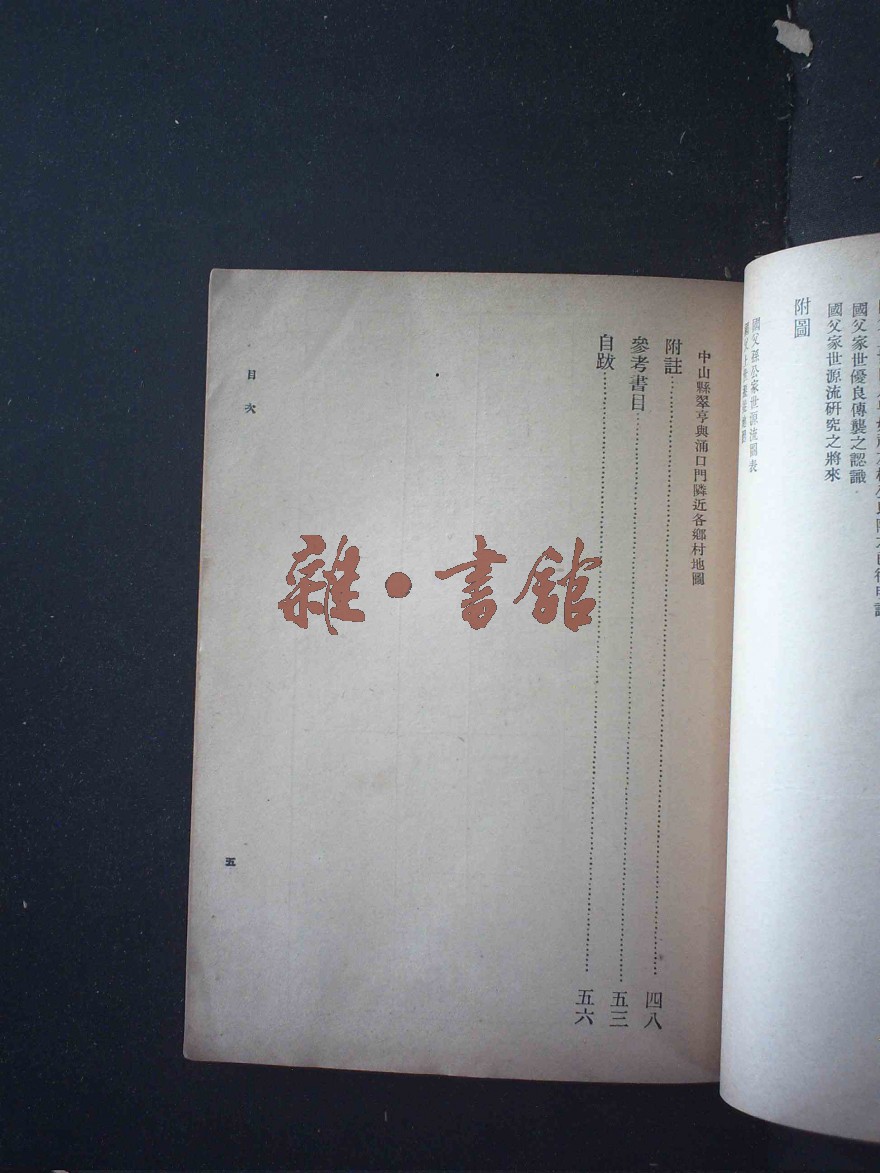 國父家世優良傳襲之認識
國父家世源流研究之將來
附圖
國父孫公家世源流圖表
中山縣翠亨與涌口門隣近各鄉村地圖
附註……四八
參考書目……五三
自跋……五六
目次
五
雜・書館